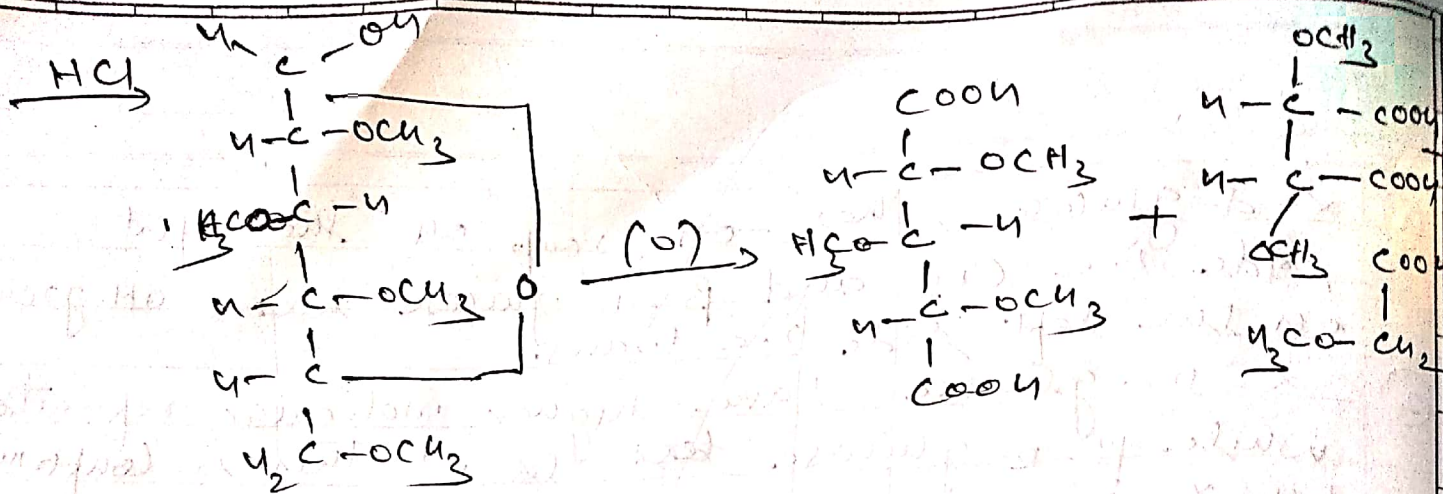 HCl
H OH
C
H-C-OCH3
H3CO-C-H
H-C-OCH3 O
H-C
H2C-OCH3
(O)
COOH
H-C-OCH3
H3CO-C-H
H-C-OCH3
COOH
+
OCH3
H-C-COOH
H-C-COOH
OCH3
COOH
H3CO-CH2